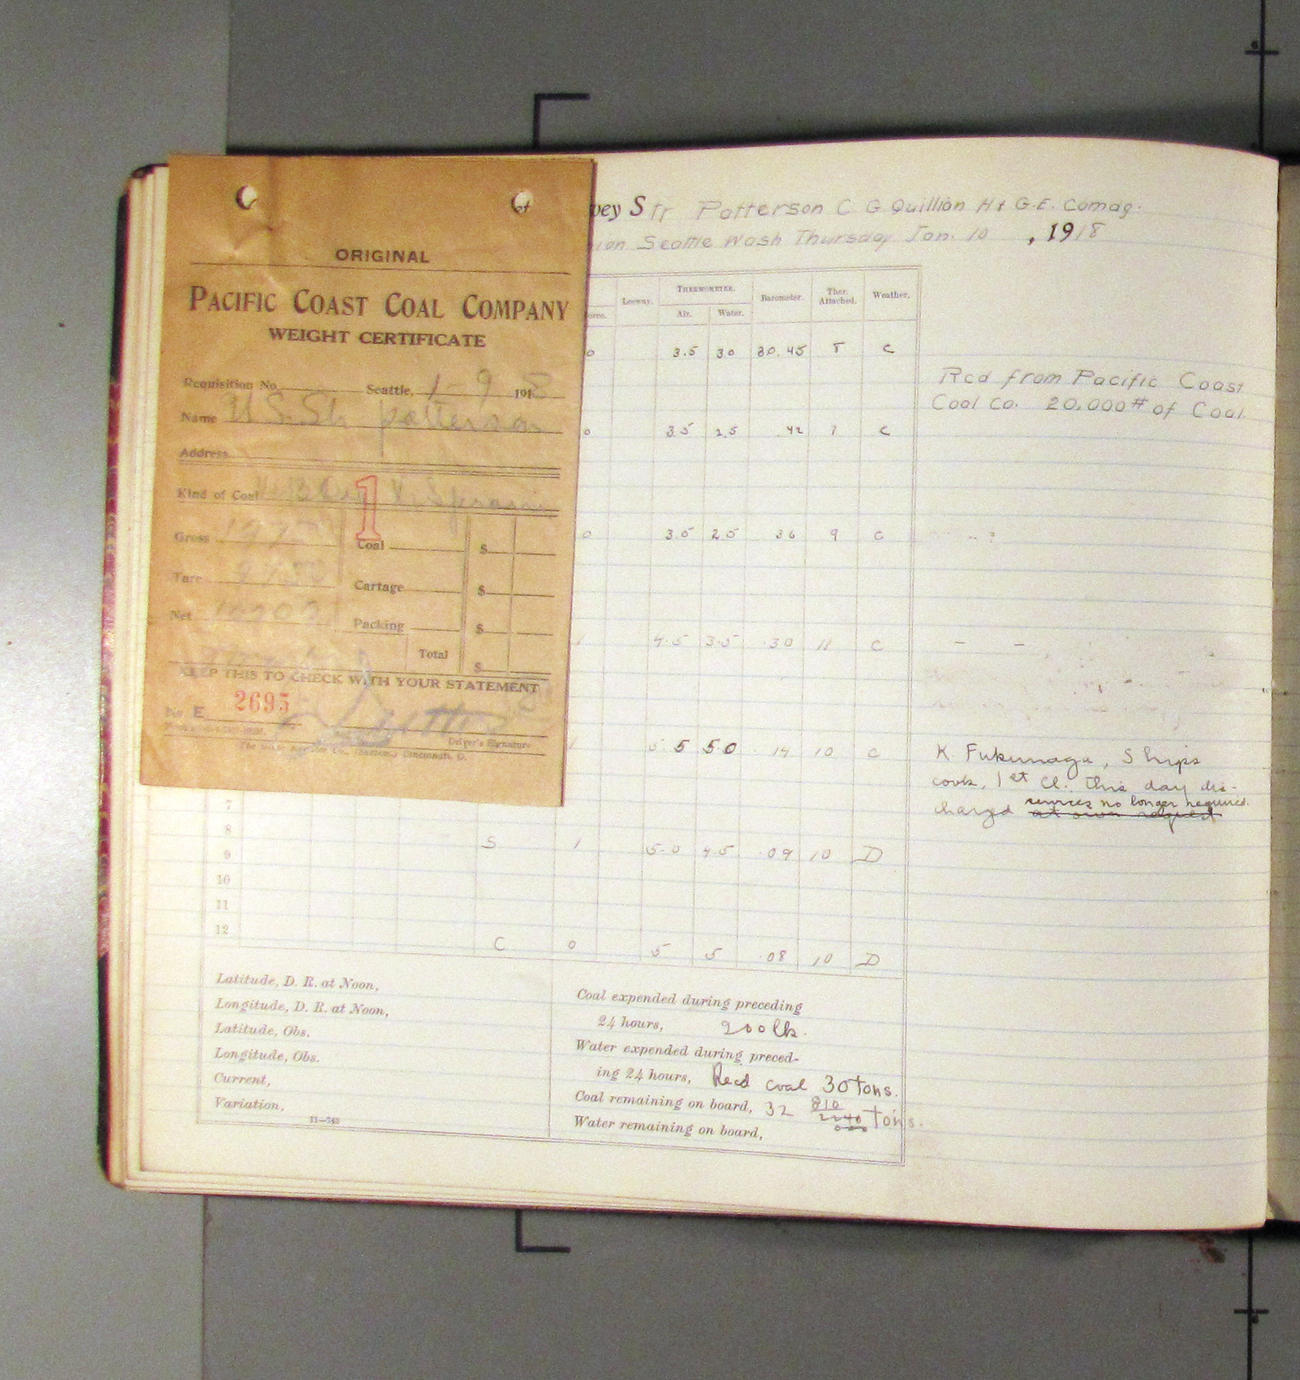 ORIGINAL
PACIFIC COAST COAL COMPANY
WEIGHT CERTIFICATE
Requisition No. Seattle, 1-9 1918
Name U.S. Str patterson
Address
Kind of Coal
Gross Coal $
Tare Cartage $
Net Packing $
Total $
KEEP THIS TO CHECK WITH YOUR STATEMENT
E 2695
Driver's Signature
vey Str Patterson C. G. Quillian H & G.E. Comdg.
ion Seattle Wash Thursday Jan. 10, 1918
Leeway. THERMOMETER. Barometer. Ther. Attached. Weather.
Air. Water.
0 3.5 3.0 30.45 C
Rcd from Pacific Coast
Coal Co. 20,000 # of Coal
0 3.5 2.5 .42 7 C
0 3.5 2.5 36 9 C
1 4.5 3.5 .30 11 C
1 5.5 5.0 .14 10 C
K. Fukunaga, Ships
cook, 1st Cl. this day dis-
charged services no longer required
at own request
7
8
9 S 1 5.0 4.5 .09 10 D
10
11
12 C 0 5 5 .08 10 D
Latitude, D. R. at Noon,
Longitude, D. R. at Noon,
Latitude, Obs.
Longitude, Obs.
Current,
Variation,
11—743
Coal expended during preceding
24 hours, 200 lb.
Water expended during preced-
ing 24 hours, Recd coal 30 tons.
Coal remaining on board, 32 810/2240 tons.
Water remaining on board,